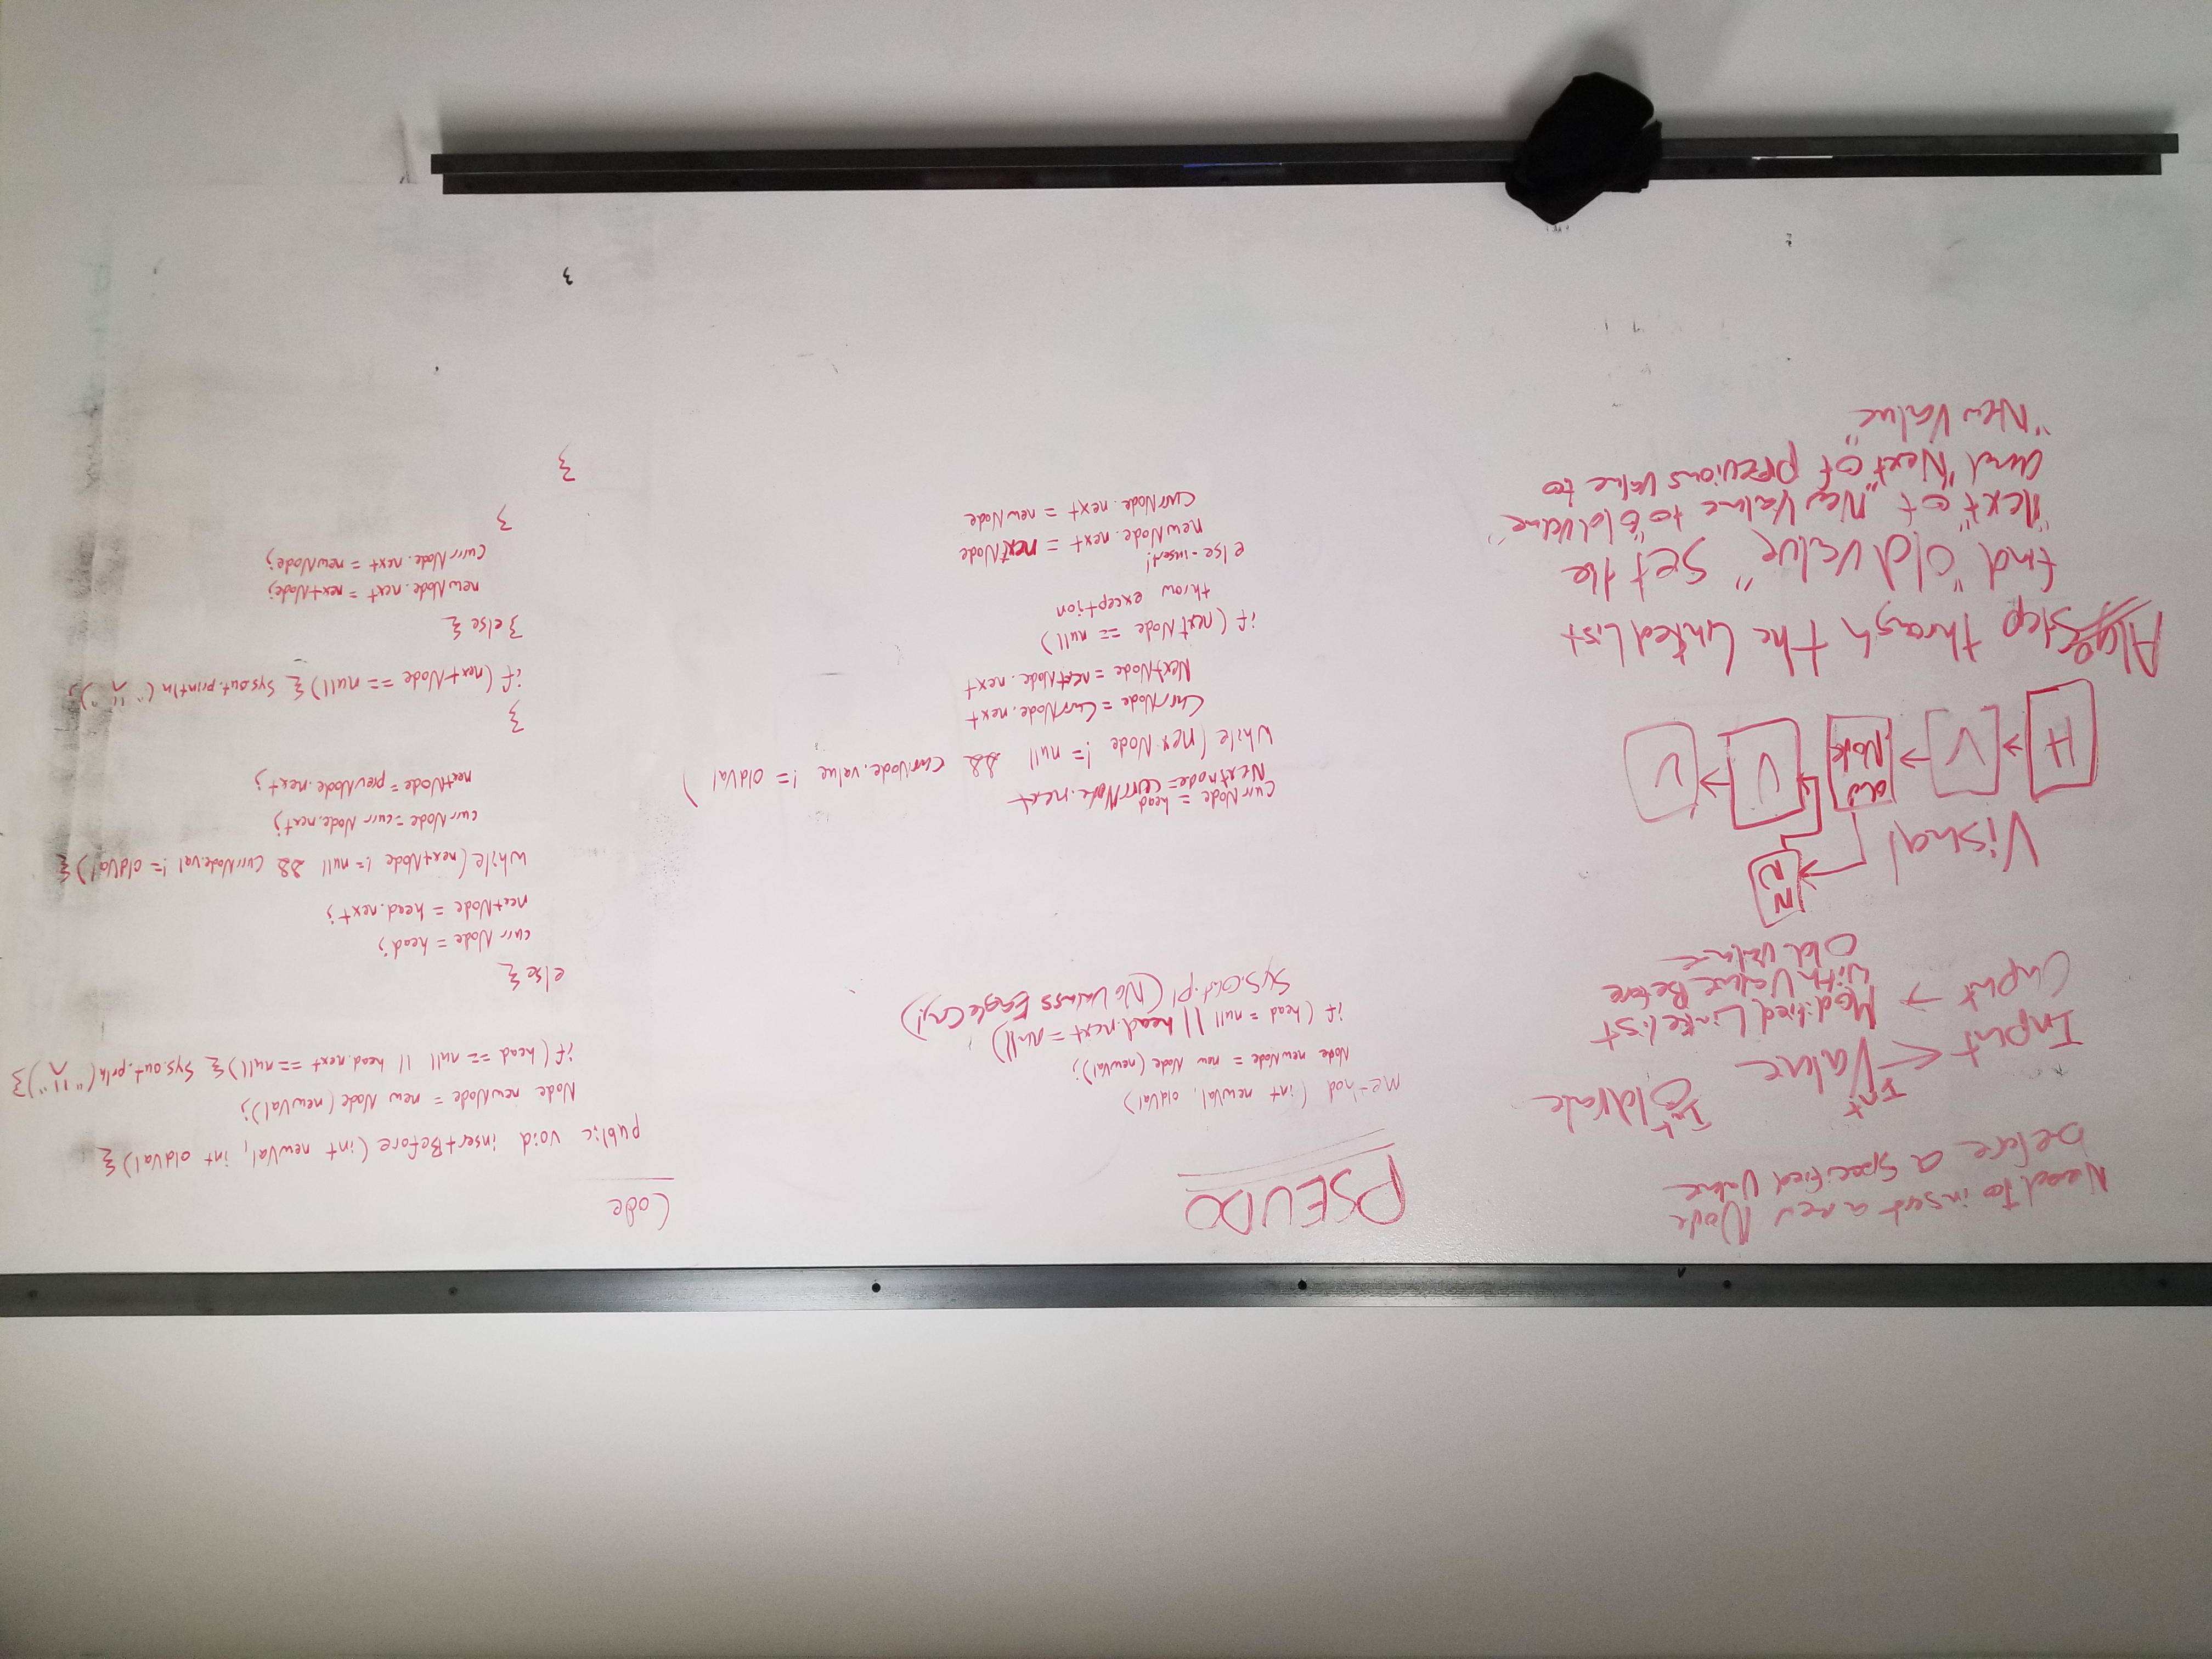 Need to insert a new Node
before a specified Value
Int Int
Input ← Value Oldvale
Ouput → Modified Linkelist
with Value Before
Old value
Visual
N
N
H V Old Node V V
Algo Step through the Linked List
find "old value" set the
"next" of New Value to "old value"
and "Next" of previous value to
"New Value"
PSEUDO
method (int newVal, oldVal)
Node newNode = new Node (newVal);
if (head = null || head.next = null)
Sys.out.pl (No Values Eagle Cry!)
currNode = head
Nextnode = currNode.next
While (nexNode != null && currNode.value != oldVal )
CurrNode = CurrNode.next
NextNode = nextNode.next
if (nextNode == null)
throw exception
else - insert!
newNode.next = nextNode
currNode.next = newNode
Code
public void insertBefore (int newVal, int oldVal) {
Node newNode = new Node (newVal);
if (head == null || head.next == null) { Sys.out.prln (" ")}
else {
curr Node = head;
nextNode = head.next;
while (nextNode != null && currNode.val != oldVal) {
currNode = curr Node.next;
nextNode = prevNode.next;
}
if (nextNode == null) { Sys.out.println (" ");
} else {
newNode.next = nextNode;
currNode.next = newNode;
}
}
}